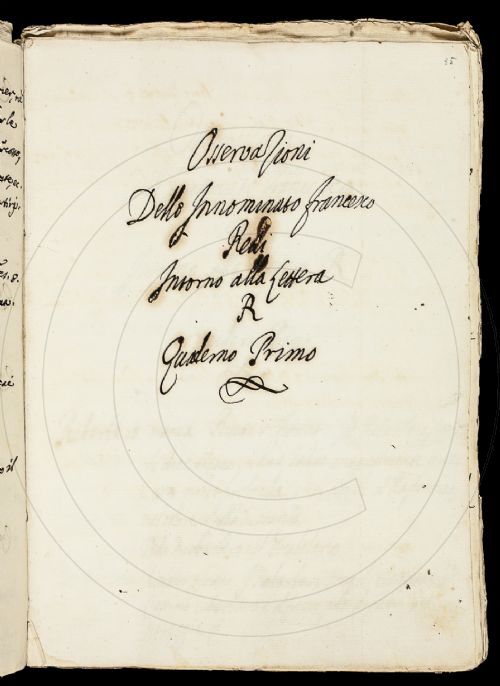 55
Osservazioni
Dello Innominato francesco
Redi
Intorno alla Lettera
R
Quaderno Primo